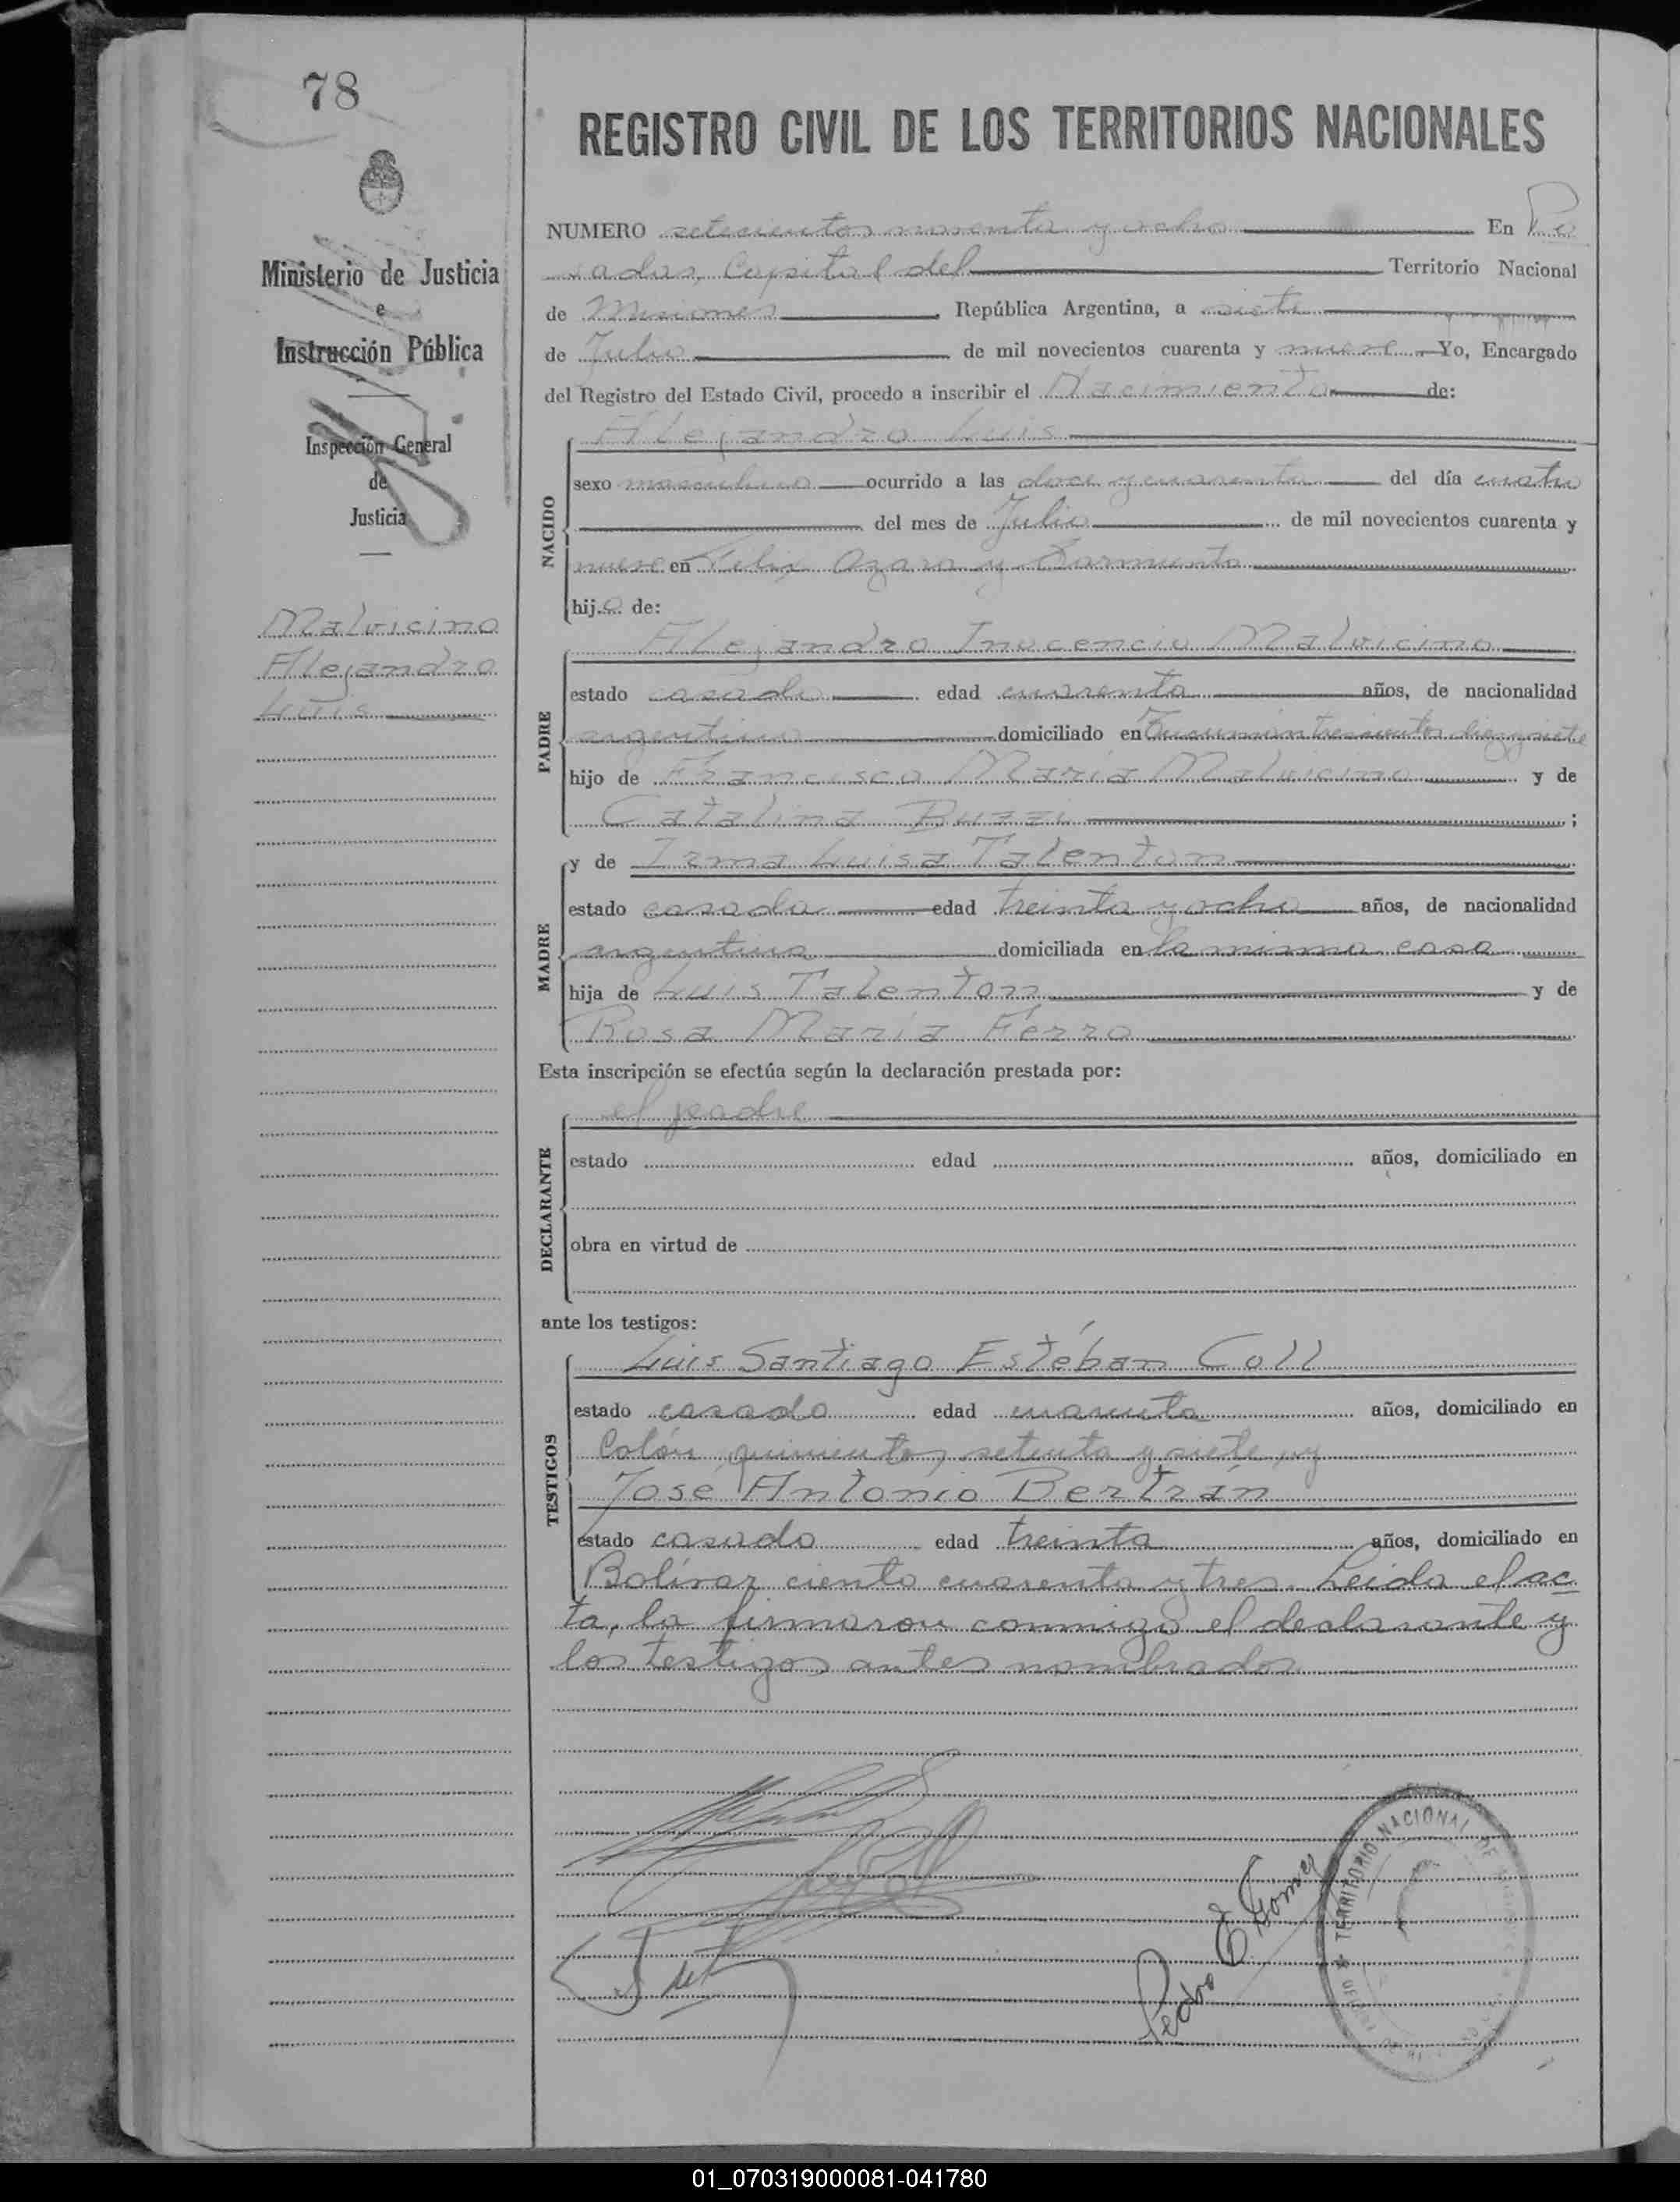 78
Ministerio de Justicia
e
Instrucción Pública
Inspección General
de
Justicia
Malvicino
Alejandro
Luis
REGISTRO CIVIL DE LOS TERRITORIOS NACIONALES
NUMERO setecientos noventa y ocho En Po
sadas, Capital del Territorio Nacional
de Misiones República Argentina, a siete
de Julio de mil novecientos cuarenta y nueve Yo, Encargado
del Registro del Estado Civil, procedo a inscribir el Nacimiento de:
NACIDO
Alejandro Luis
sexo masculino ocurrido a las doce y cuarenta del día cuatro
del mes de Julio de mil novecientos cuarenta y
nueve en Felix Azara y Sarmiento
hijo de:
PADRE
Alejandro Inocencio Malvicino
estado casado edad cuarenta años, de nacionalidad
argentino domiciliado en Tucumán trescientos diez y siete
hijo de Francisco María Malvicino y de
Catalina Buzzi ;
MADRE
y de Irma Luisa Talenton
estado casada edad treinta y ocho años, de nacionalidad
argentina domiciliada en la misma casa
hija de Luis Talenton y de
Rosa María Ferro
Esta inscripción se efectúa según la declaración prestada por:
DECLARANTE
el padre
estado edad años, domiciliado en
obra en virtud de
ante los testigos:
TESTIGOS
Luis Santiago Estéban Coll
estado casado edad cuarenta años, domiciliado en
Colón quinientos setenta y siete, y
José Antonio Bertrán
estado casado edad treinta años, domiciliado en
Bolívar ciento cuarenta y tres. Leida el ac
ta, la firmaron conmigo el declarante y
los testigos antes nombrados
Pedro E. Gomez
TERRITORIO NACIONAL DE
01_070319000081-041780